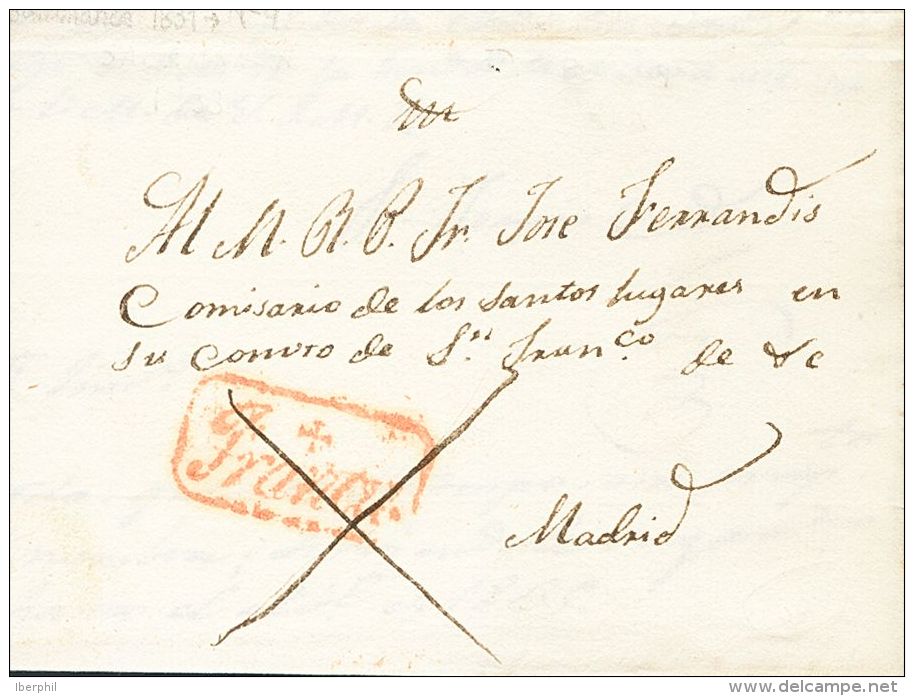 Al M. R. P. Fr. Jose Ferrandis
Comisario de los santos lugares en
su convto de Sn. Franco. de &c
Franca.
Madrid
Iberphil
www.delcampe.net